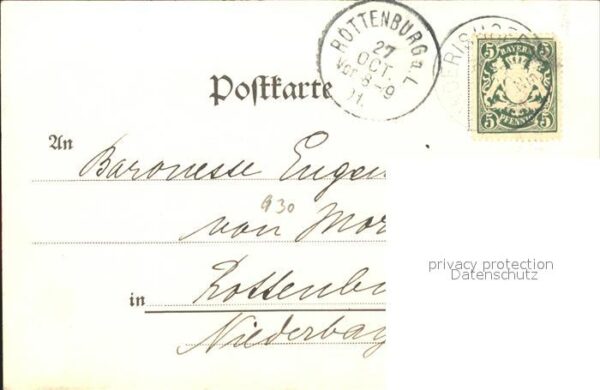 ROTTENBURG a. L.
27
OCT.
Vor 8-9
01.
5 BAYERN 5
5 PFENNIG 5
Postkarte
An
Baronesse Eugen
930
von Mor
in Rottenbu
Niederbay
privacy protection
Datenschutz